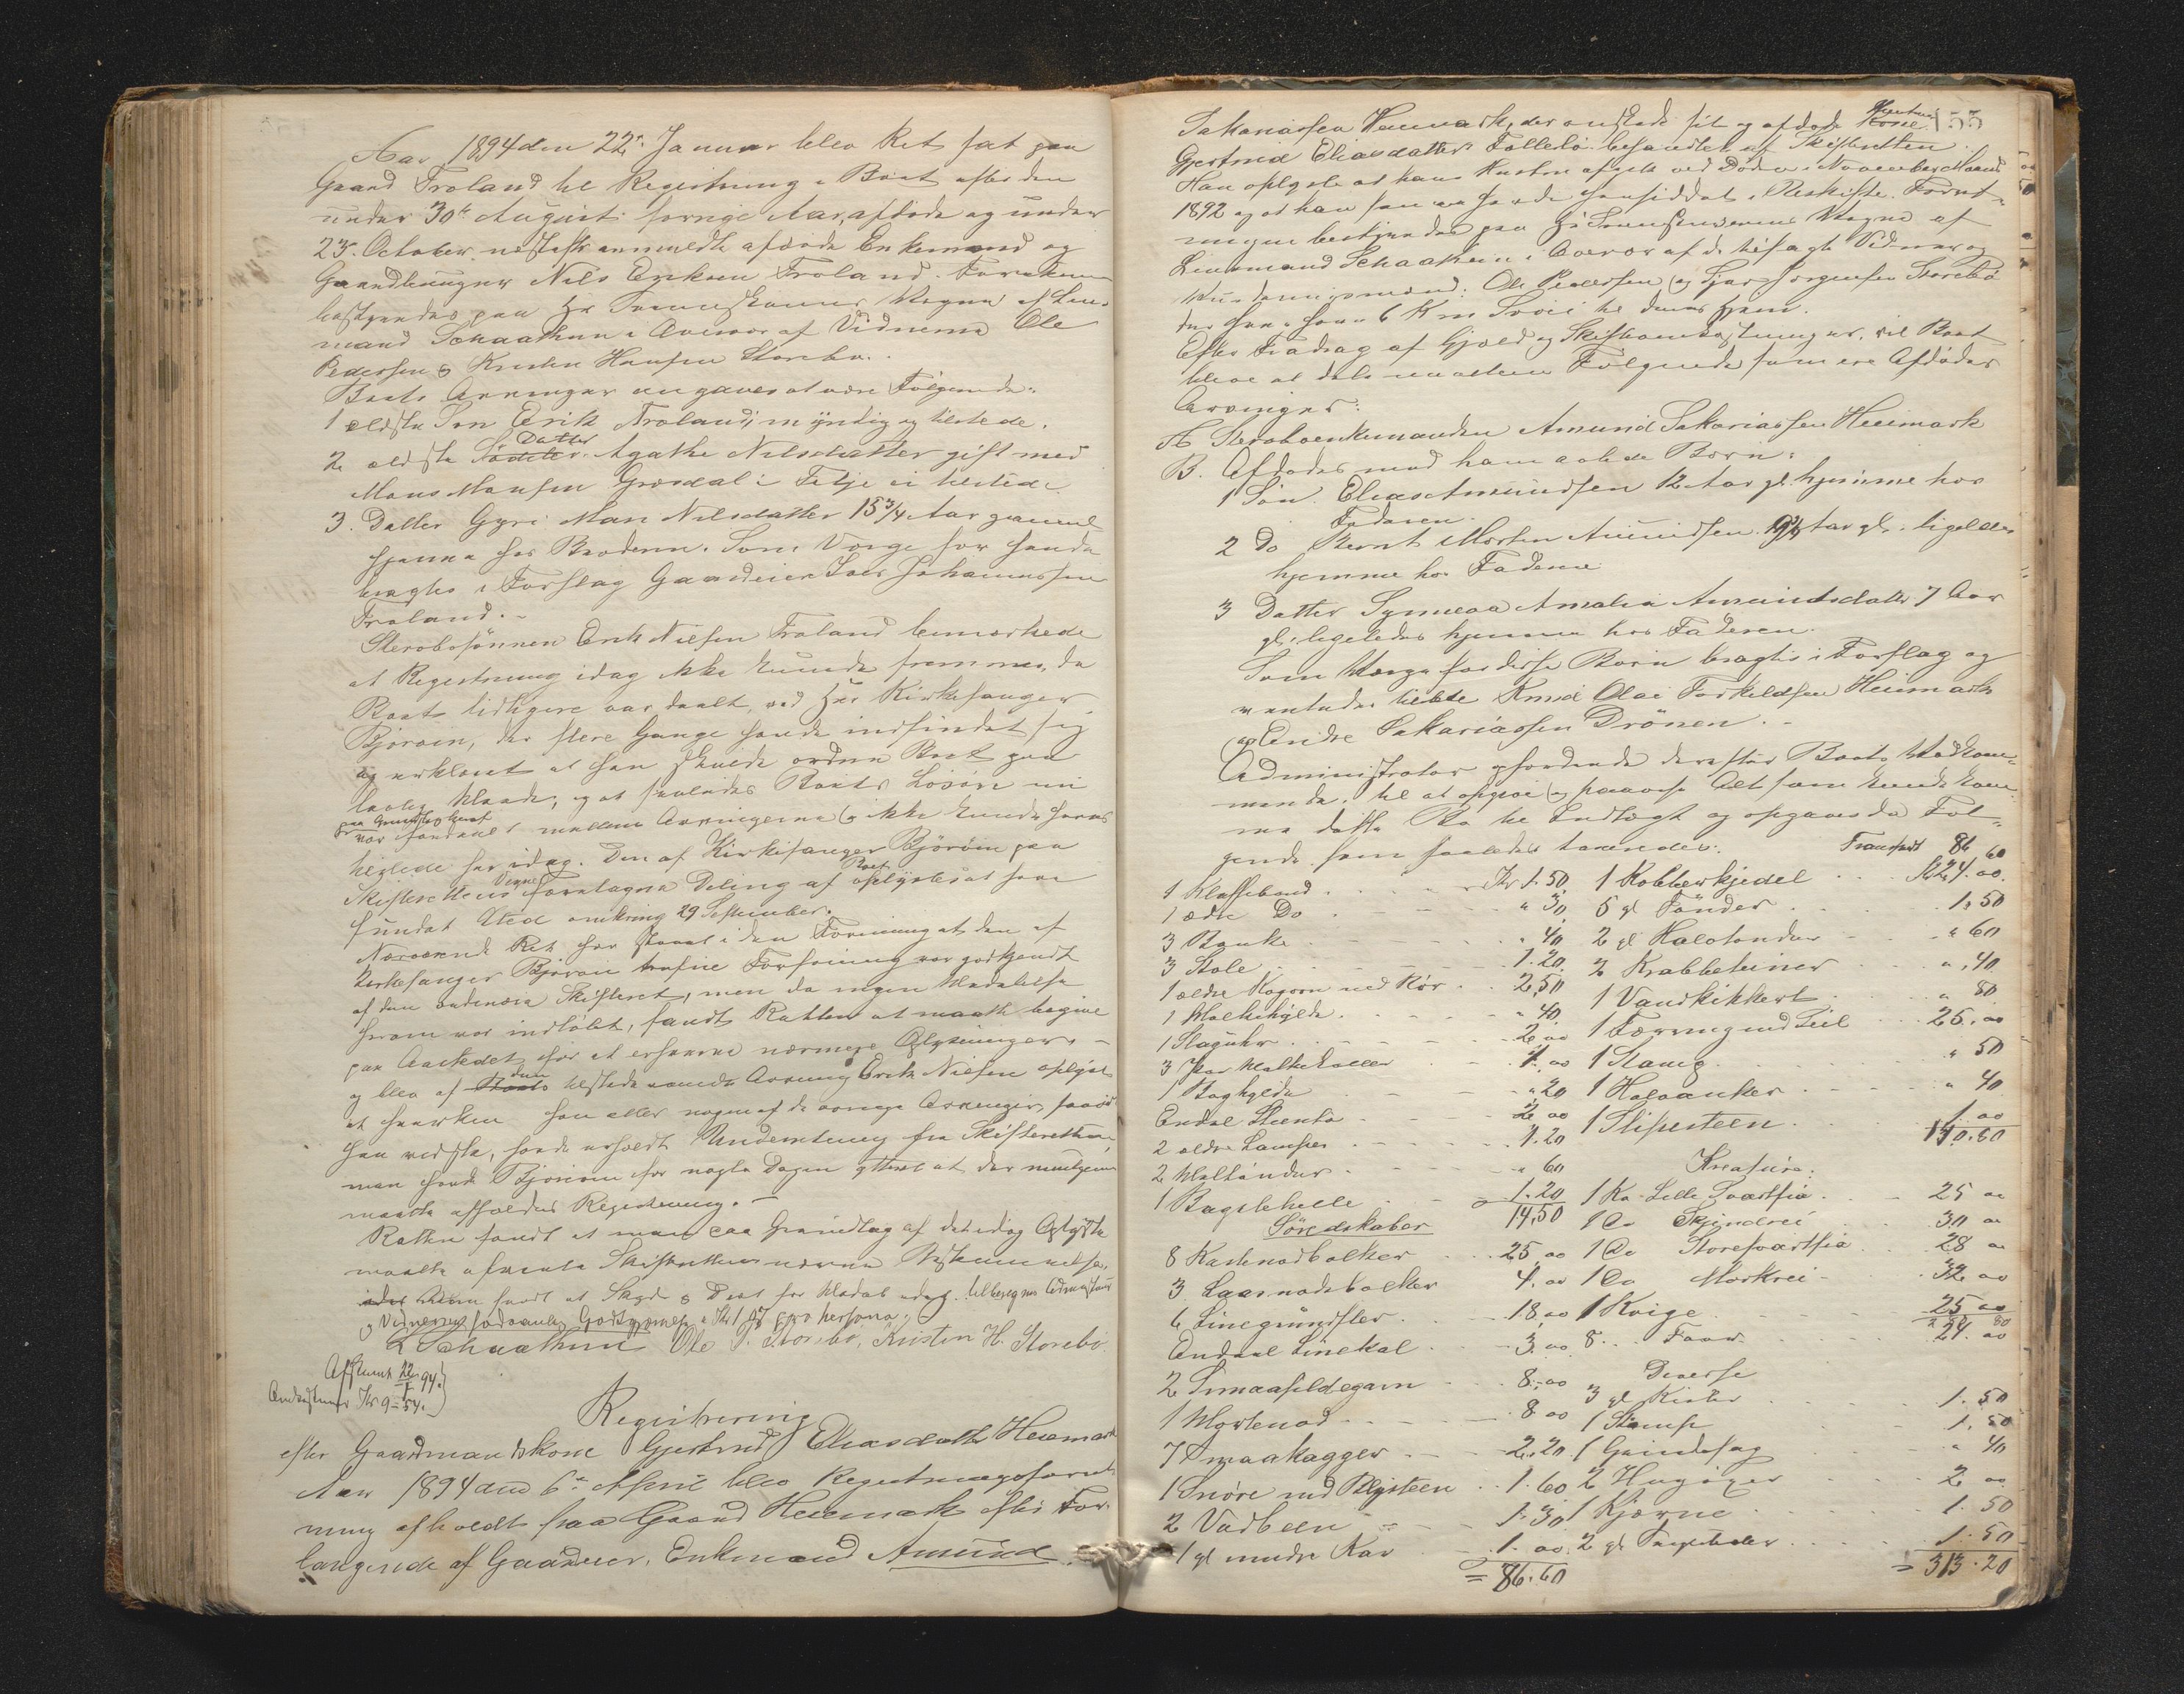 Aar 1894 den 22de Januar blev Ret sat paa
Gaard Troland til Registrering i Boet efter den
under 30te August forrige Aar, afdøde og under
23. October næstefter anmeldte afdøde Enkemand og
Gaardbruger Nils Eriksen Troland. Forretn
bestyredes paa Hr Sorenskrivers Vegne af Lens-
mand Schaathun i Overvær af Vidnerne Ole
Pedersen & Kristen Hansen Storebø.
Boets Arvinger angaves at være Følgende:
1 ældste Søn Erik Troland, myndig og tilstede.
2 ældste Datter Agathe Nilsdatter gift med
Mons Monsen Grøsdal i Fitje ei tilstede.
3. Datter Gyri Mari Nilsdatter 15 3/4 Aar gammel
hjemme hos Broderen. Som Verge for hende
bragtes i Forslag Gaardeier Lars Johannessen
Troland.-
Stervbosønnen Erik Nilsen Troland bemærkede
at Registrering idag ikke kunde fremmes, da
Boet tidligere var deelt, ved Hr Kirkesanger
Bjørøen, der flere Gange havde indfundet sig
og erklæret at han skulde ordne Boet paa
lovlig Maade, og at saaledes Boets Løsøre nu
paa Grundlag heraf
var fordeelt mellem Arvingerne og ikke kunde haves
tilstede her idag. Den af Kirkesanger Bjørøen paa
Skifterettens Vegne foretagne Deling af Boet oplystes at have
fundet Sted omkring 29 September.
Nærværende Ret har staaet i den Formening at den af
Kirkesanger Bjørøen trufne Forføining var godkjendt
af den ordinære Skifteret, men da ingen Meddelelse
herom var indløbet, fandt Retten at maatte begive
paa Aastedet for at erfare nærmere Oplysninger. -
og blev af den tilstedeværende Arving Erik Nilsen oplyst
at hverken han eller nogen af de øvrige Arvinger, saavidt
han vidste, havde erholdt Underretning fra Skifteretten,
men havde Bjørøen for nogle Dage yttret at der muligens
maatte afholdes Registrering. -
Retten fandt at man paa Grundlag af det idag Oplyste
maatte afvente Skifterettens nærmere Bestemmelse.
Vidnerne Godtgjørelse Kr 1 pro persona.
L Schaathun Ole P. Storebø, Kristen H. Storebø.
Afskrevet 22/1 94.
Omkostninger Kr 9-54.
Registrering
efter Gaardmandskone Gjertrud Eliasdatter Heimark
Aar 1894 den 6te April blev Registreringsforret-
ning afholdt paa Gaard Heimark efter For-
langende af Gaardeier, Enkemand Amund
155
Sakariassen Heimark, der ønskede sit og afdøde Hustru
Gjertrud Eliasdatter Følleløs behandlet af Skifteretten.
Han oplyste at hans Hustru afgik ved Døden i November Maaned
1892 og at han havde hensiddet i uskiftet. Forret-
ningen bestyredes paa Hr Sorenskriverens Vegne af
Lensmand Schaathun i Overvær af de tilsagte Vidner og
Vurderingsmænd: Ole Pedersen og Lars Jørgensen Storebø
der have havt 6 Km Søvei til deres Hjem.
Efter Fradrag af Gjæld og Skifteomkostninger, vil Boet
blive at dele mellem Følgende som ere Afdødes
Arvinger:
A Stervboenkemanden Amund Sakariassen Heimark
B. Afdødes med ham avlede Børn:
1 Søn Elias Amundsen 12 Aar gl. hjemme hos
Faderen.
2 Do Bernt Martin Amundsen 9 3/4 Aar gl. ligeledes
hjemme hos Faderen
3 Datter Synneva Amalia Amundsdatter 7 Aar
gl. ligeledes hjemme hos Faderen.
Som Verge for disse Børn bragtes i Forslag og
Knud Olai Torkildsen Heimark
og Endre Sakariassen Drønen. -
Administrator opfordrede derefter Boets Vedkom-
mende til at opgive og paavise Alt som kunde kom-
me dette Bo til Indtægt og opgaves da Føl-
gende som saaledes taxeredes: Transport 86 60
1 Klaffebord Kr 1.50 1 Kobberkjedel Kr 24.00.
1 ældre Do " 30 5 gl Tønder 1.50
3 Bænke " 40 2 gl Halvtønder " 60
3 Stole 1.20 2 Krabbeteiner " 40
1 ældre Kogovn med Rør 2.50 1 Vandkikkert " 80
1 Melkehylde " 40 1 Færring med Seil 25.00
1 Slaguhr 2.00 1 Stang " 50
3 Par Melkekoller 1.00 1 Halvanker " 40
1 Baghylde " 20 1 Slipesteen 1.00
Endel Steentøi 2.00 140.80
2 ældre Lamper 1.20 Kreature:
2 Meltønder " 60 1 Ko Lille Svartsia 25 00
1 Bagstehelle 1.20 1 Do Skjendrei 30 00
14,50
Søredskaber
8 Kastenodbolker 25 00 1 Do Storesvartsia 28 00
3 Laasnodbolker 4.00 1 Do Morkrei 32 00
6 Linegrundsler 18.00 1 Kvige 25 00
Endeel Linekal 3.00 8 Faar 24.00
2 Smaasildegarn 8.00 Diverse
1 Mortenod 8 00 3 gl Kister 1.50
7 Smaakagger 2.20 1 Stamp 1.50
1 Snøre med Blysteen 1.60 1 Grindsag " 40
2 Vadbeen 1.30 2 Hugøxer 2 00
1 gl mudre Kar 1.00 1 Kjærne 1.50
= 86.60 2 gl 1.50
= 313.20